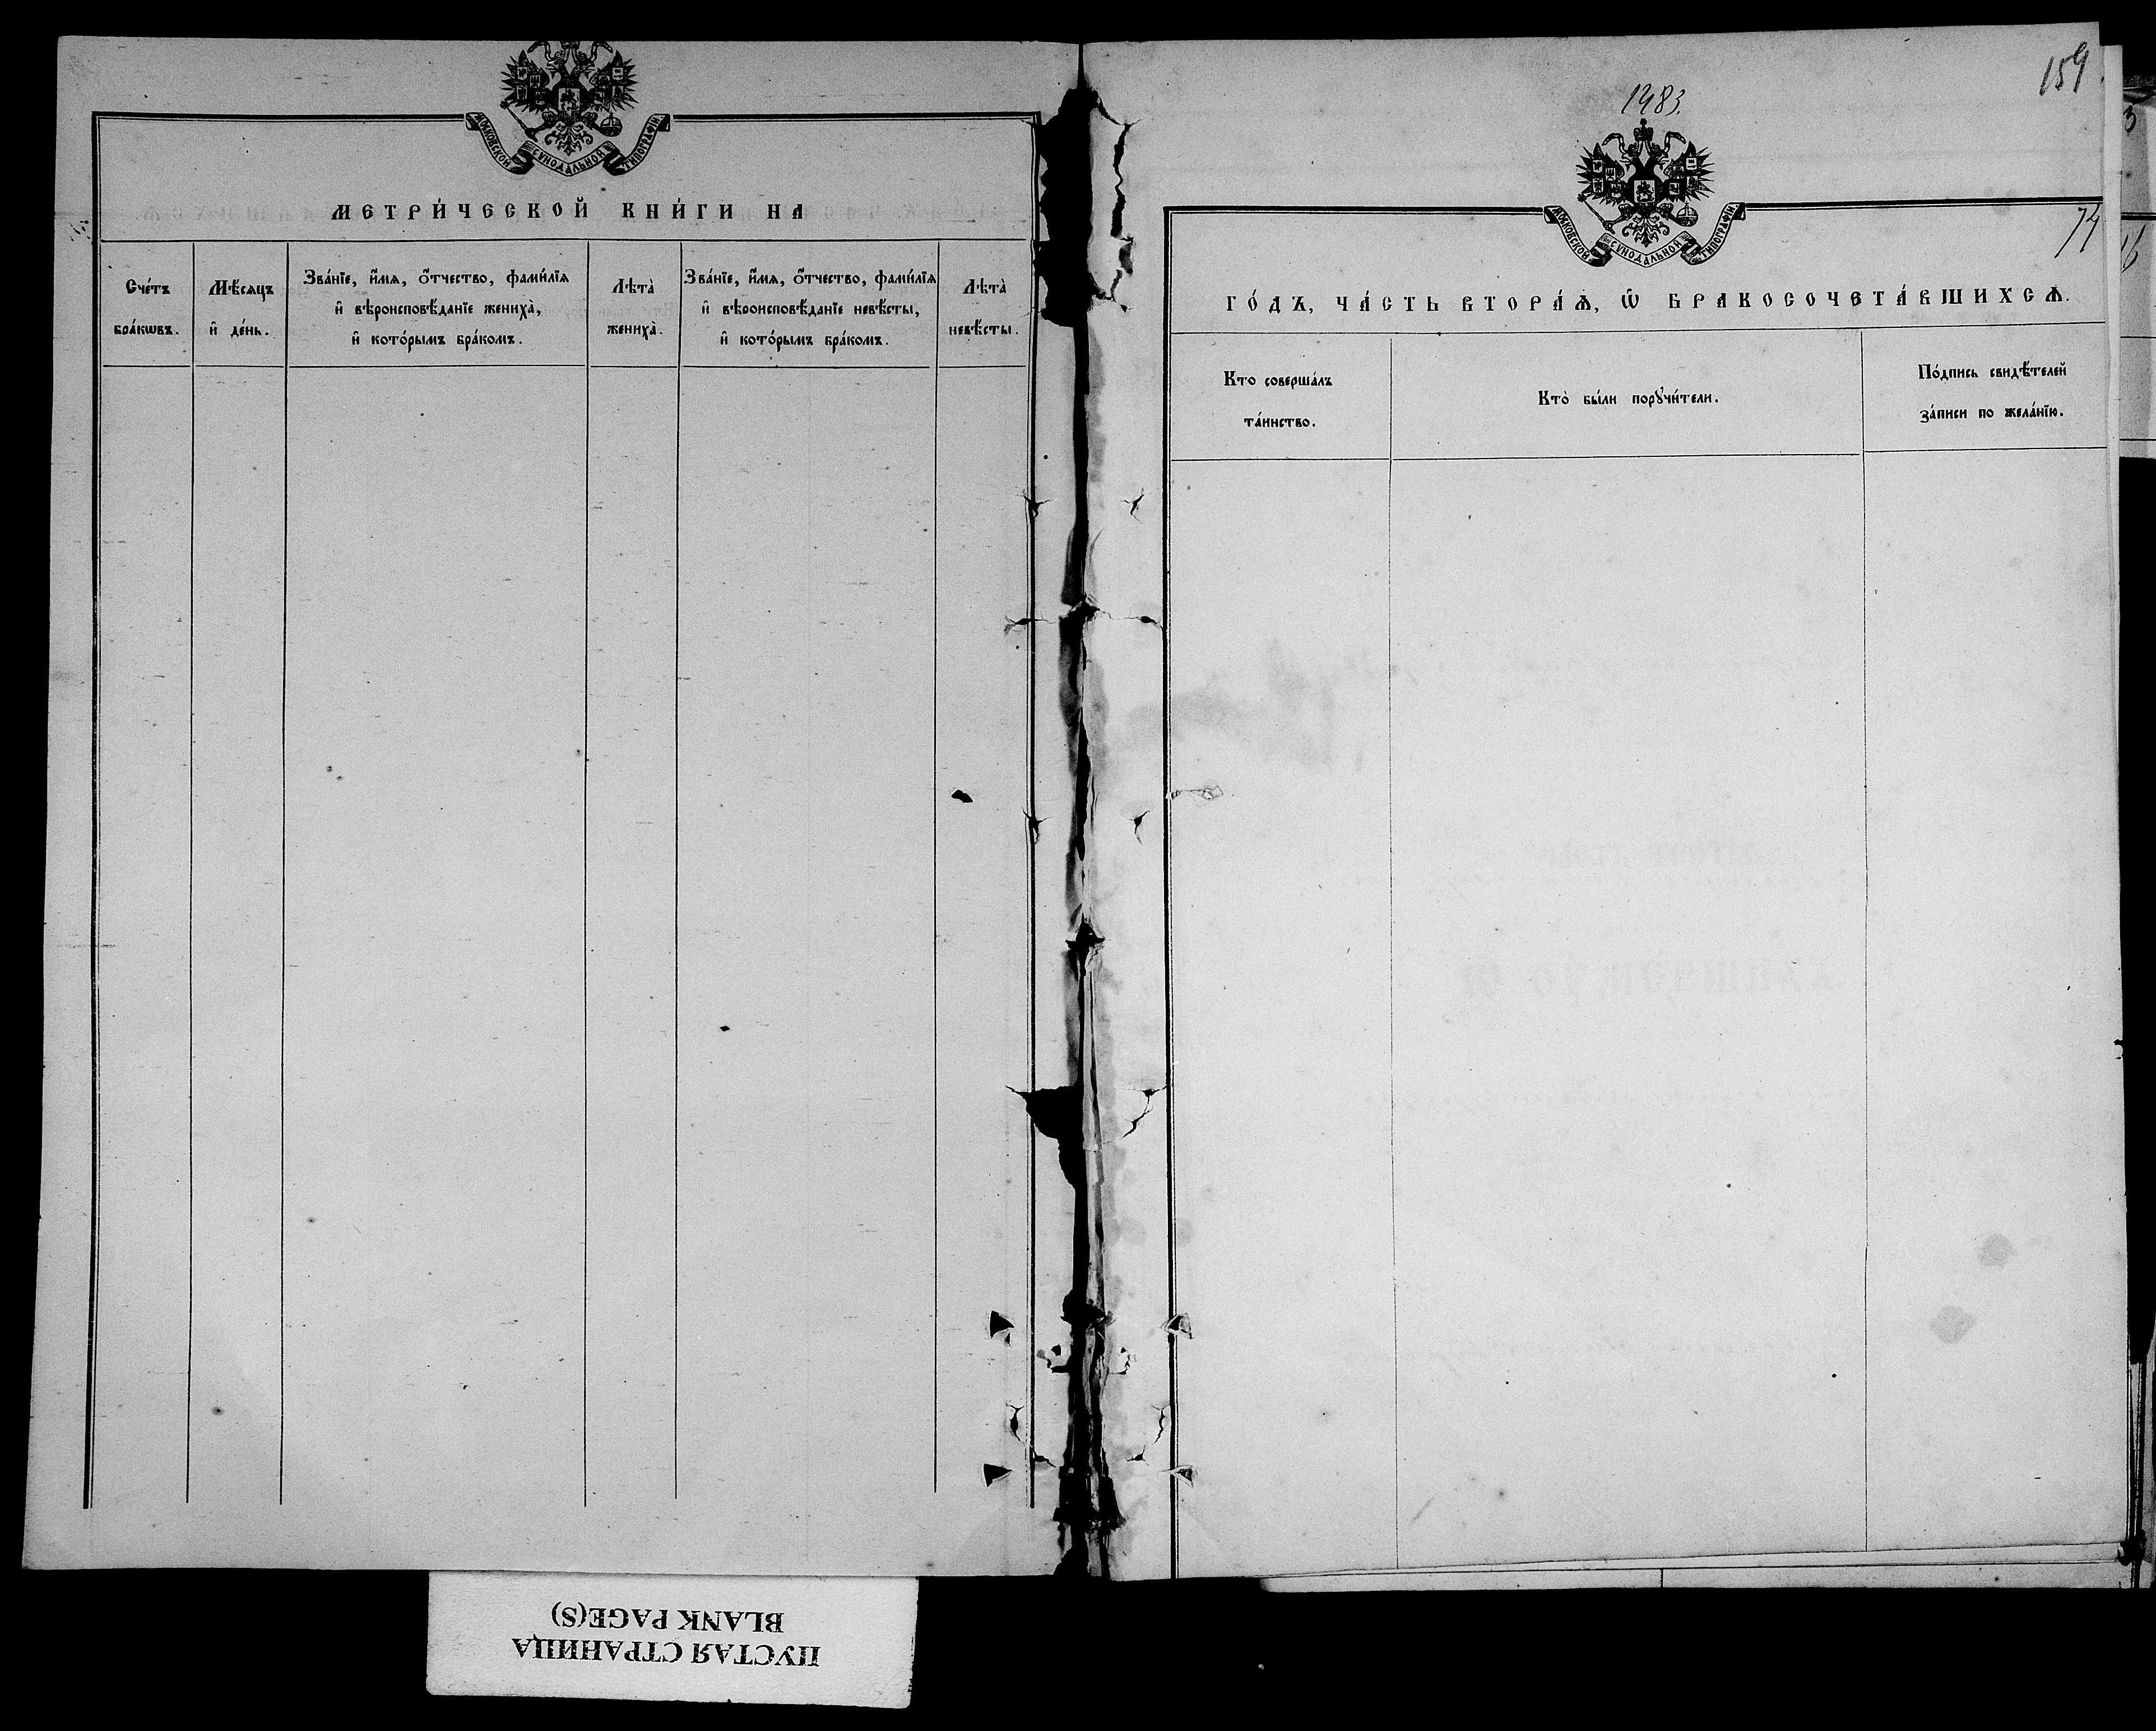 МОСКОВСКОЙ СѴНОДАЛЬНОЙ ТИПОГРАФІИ
МЕТРИ́ЧЕСКОЙ КНИ́ГИ НА
Сче́тъ
бра́кѡвъ.
Мѣ́сяцъ
и҆ де́нь.
Зва́нїе, и҆́мѧ, ѻ҆́тчество, фами́лїѧ
и҆ вѣроисповѣ́данїе жениха̀,
и҆ кото́рымъ бра́комъ.
Лѣта̀
жениха̀.
Зва́нїе, и҆́мѧ, ѻ҆́тчество, фами́лїѧ
и҆ вѣроисповѣ́данїе невѣ́сты,
и҆ кото́рымъ бра́комъ.
Лѣта̀
невѣ́сты.
159
1483.
МОСКОВСКОЙ СѴНОДАЛЬНОЙ ТИПОГРАФІИ
74
ГО́ДЪ, ЧА́СТЬ ВТОРА́Ѧ, Ѡ҆ БРАКОСОЧЕТА́ВШИХСѦ.
Кто совершáлъ
та́инство.
Кто̀ бы́ли порꙋчи́тели.
По́дпись свидѣ́телей
за́писи по жела́нїю.
ПУСТАЯ СТРАНИЦА
BLANK PAGE(S)